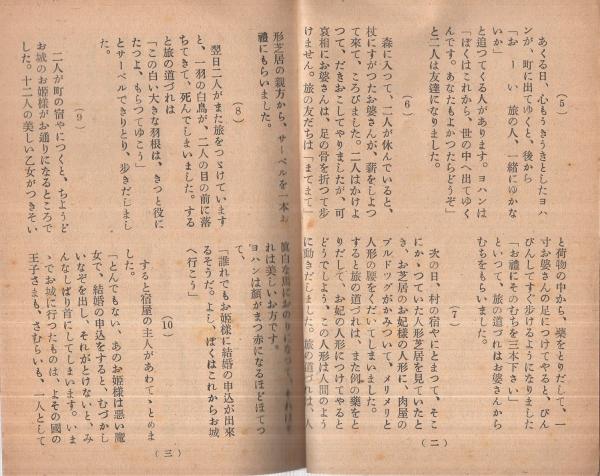 (5)
あくる日、心もうきうきとしたヨハ
ンが、町に出てゆくと、後から
「おーい 旅の人、一緒にゆかな
いか」
と追つてくる人があります。ヨハンは
「ぼくはこれから、世の中へ出てゆく
んです。あなたもよかつたらどうぞ」
と二人は友達になりました。
(6)
森に入つて、二人が休んでいると、
杖にすがつたお婆さんが、薪をしよつ
て來て、ころびました。二人はかけよ
つて、だきおこしてやりましたが、可
哀相にお婆さんは、足の骨を折つて歩
けません。旅の友だちは「まてまて」
と荷物の中から、藥をとりだして、一
寸お婆さんの足につけてやると、ぴん
ぴんしてすぐ歩けるようになりました
「お禮にそのむちを三本下さい」
といつて、旅の道づれはお婆さんから
むちをもらいました。
(7)
次の日、村の宿やにとまつて、そこ
にかゝつていた人形芝居を見ていたと
き、お芝居のお妃様の人形に、肉屋の
ブルドッグがかみついて、メリメリと
人形の腰をくだいてしまいました。
すると旅の道づれは、また例の藥をと
りだして、お妃の人形につけてやると
どうでしよう、この人形は人間のよう
に動きだしました。旅の道づれは、人
(二)
形芝居の親方から、サーベルを一本お
禮にもらいました。
(8)
翌日二人がまた旅をつゞけています
と、一羽の白鳥が、二人の目の前に落
ちてきて、死んでしまいました。する
と旅の道づれは
「この白い大きな羽根は、きつと役に
たつよ、もらつてゆこう」
とサーベルできりとり、歩きだしまし
た。
(9)
二人が町の宿やにつくと、ちようど
お城のお姫様がお通りになるところで
した。十二人の美しい乙女がつきそい
眞白な馬におのりになつて、それはそ
れは美しいお方です。
ヨハンは顏がまつ赤になるほどほてつ
て、
「誰れでもお姫様に結婚の申込が出來
るそうだ。よし、ぼくはこれからお城
へ行こう」
(10)
すると宿屋の主人があわてゝとめま
した。
「とんでもない、あのお姫様は悪い魔
女で、結婚の申込をすると、むづかし
いなぞを出し、それがとけないと、み
んなしばり首にしてしまいます。いま
までお城に行つたものは、よその國の
王子さまも、さむらいも、一人として
(三)